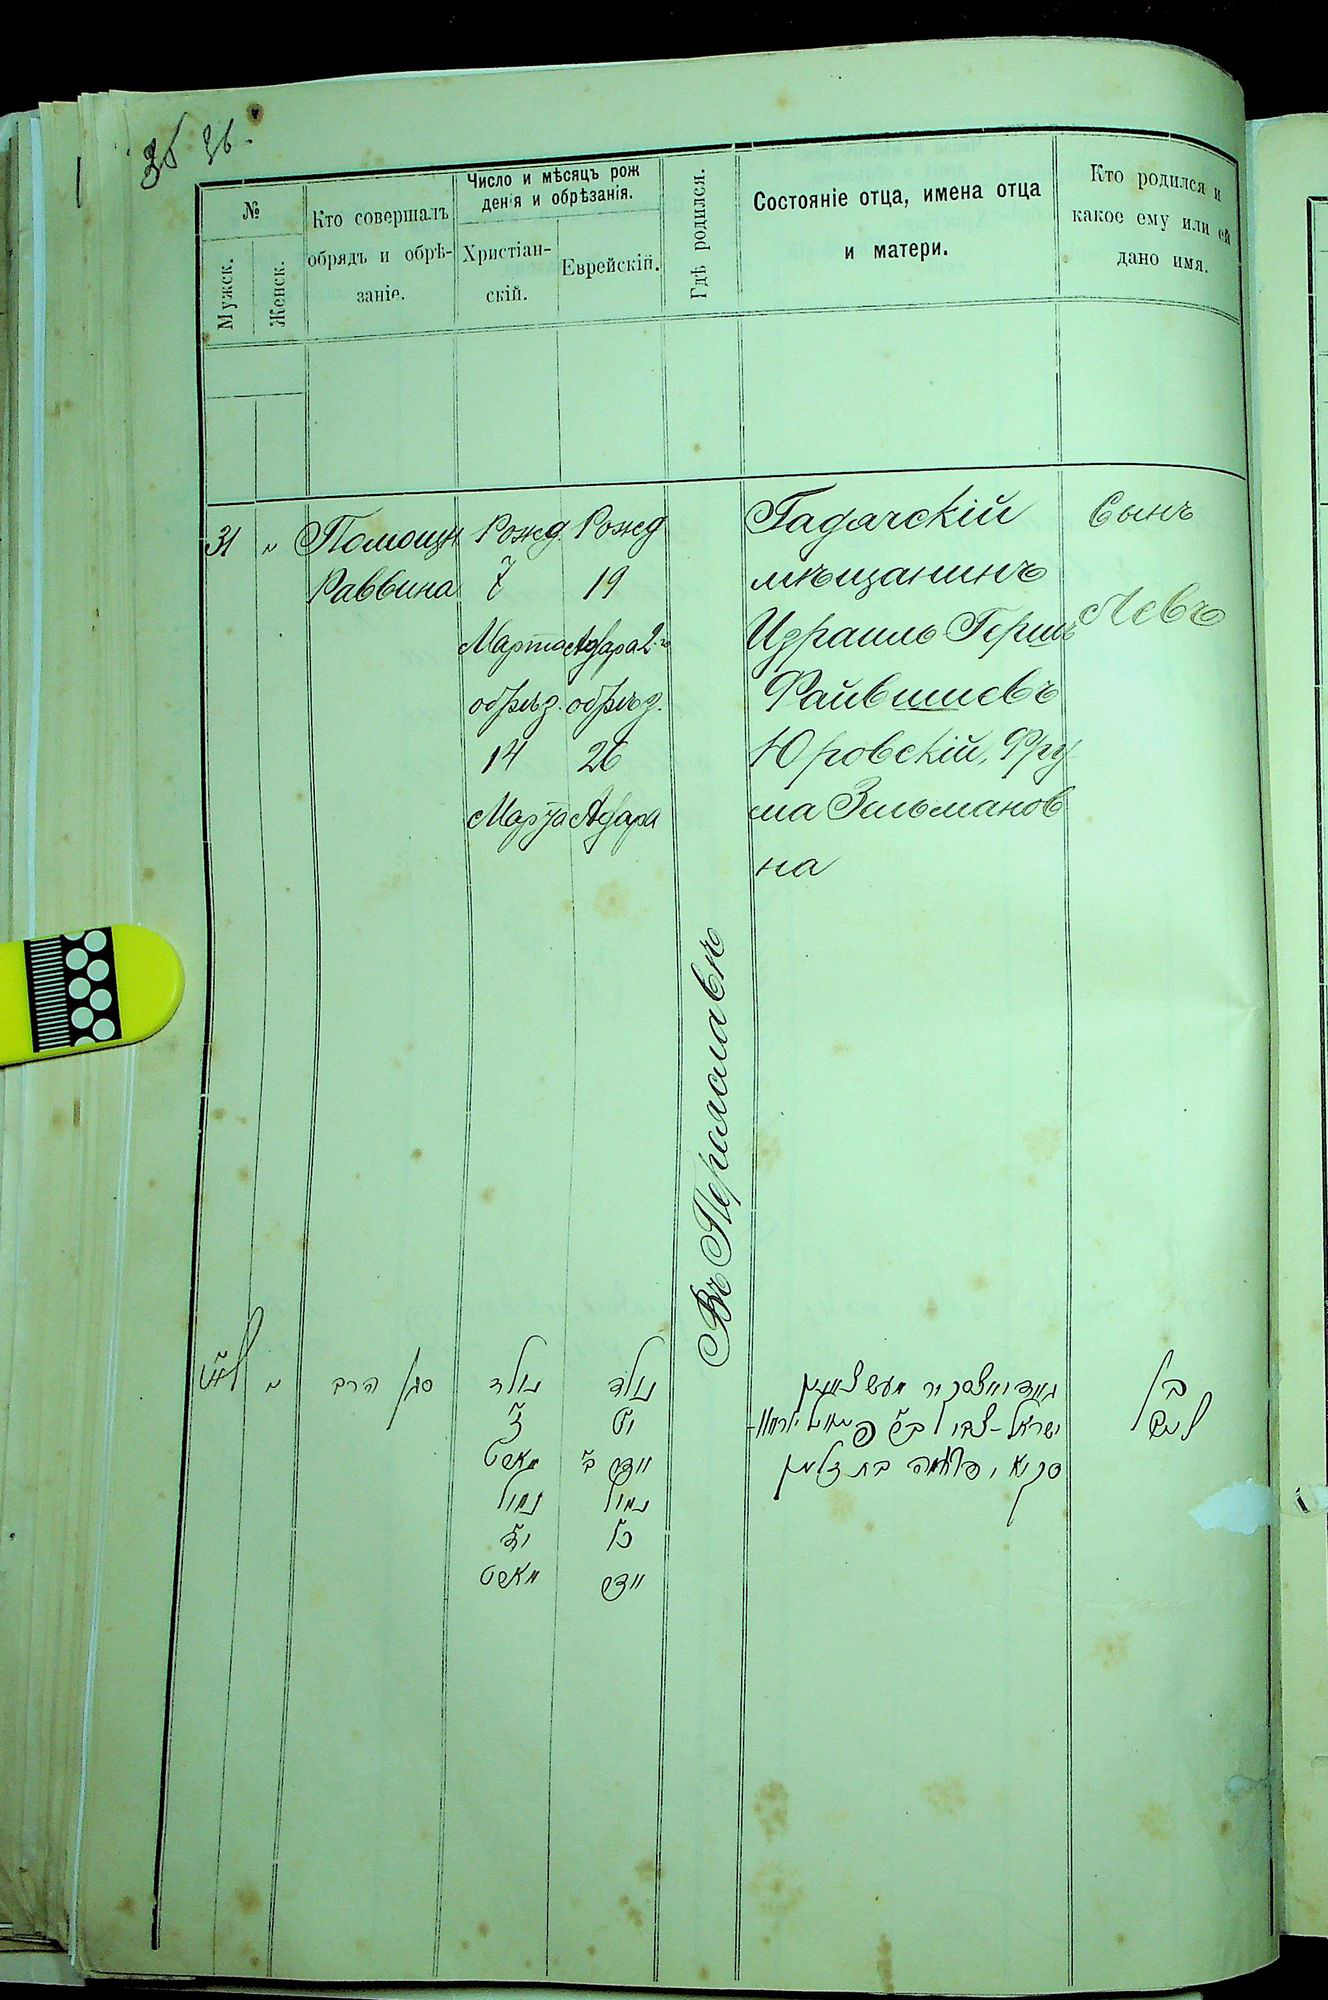 36 36.
№
Мужск.
Женск.
Кто совершалъ
обрядъ и обрѣ-
заніе.
Число и мѣсяцъ рож
денія и обрѣзанія.
Христіан-
скій.
Еврейскій.
Гдѣ родился.
Состояніе отца, имена отца
и матери.
Кто родился и
какое ему или ей
дано имя.
31 "
Помощн
Раввина
Рожд
7
Марта
обрѣз.
14
Марта
Рожд
19
Адара 2-го
обрѣз.
26
Адара
Въ Переяславѣ
Гадячскій
мѣщанинъ
Израиль Гершъ
Файвишевъ
Юровскій, Фру
ма Зельманов
на
Сынъ
Левъ
סגן הרב
נולד
ז
מארט
נמול
יד
מארט
נולד
יט
אדר ב
נמול
כו
אדר
ישראל-צבי
סקיא ו פרומה בת זלמן
בן